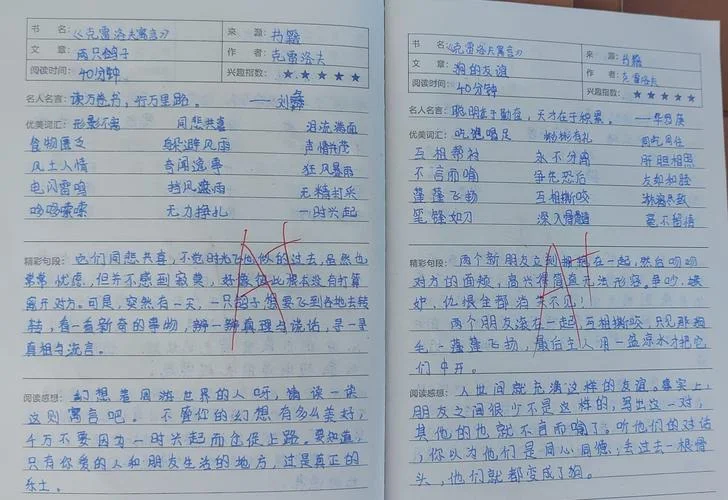 书 名:《克雷洛夫寓言》 来 源: 书籍
文 章: 两只鸽子 作 者: 克雷洛夫
阅读时间: 40分钟 兴趣指数: ★★★★★
名人名言: 读万卷书,行万里路。 ——刘彝
优美词汇: 形影不离 同悲共喜 泪流满面
食物匮乏 躲避风雨 声情并茂
风土人情 奇闻逸事 狂风暴雨
电闪雷鸣 挡风遮雨 无精打采
哆哆嗦嗦 无力挣扎 一时兴起
精彩句段: 它们同悲共喜,不觉时光飞似的过去,虽然也
常常忧虑,但并不感到寂寞,好像彼此根本没有打算
离开对方。可是,突然有一天,一只鸽子想要飞到各地去转
转,看一看新奇的事物,辨一辨真理与谎话,寻一寻
真相与流言。
阅读感想: 幻想着周游世界的人呀,请读一读
这则寓言吧。不管你的幻想有多么美好,
千万不要因为一时兴起而仓促上路。要知道,
只有你爱的人和朋友生活的地方,这是真正的
乐土。
书 名:《克雷洛夫寓言》 来 源: 书籍
文 章: 狗的友谊 作 者: 克雷洛夫
阅读时间: 40分钟 兴趣指数: ★★★★★
名人名言: 聪明在于勤奋,天才在于积累。——华罗庚
优美词汇: 吃饱喝足 彬彬有礼 同吃同住
互相帮衬 永不分离 肝胆相照
不言而喻 争先恐后 友却和睦
蓬蓬飞扬 互相撕咬 淋漓尽致
笔锋如刀 深入骨髓 毫不留情
精彩句段: 两个新朋友立刻拥抱在一起,然后吻吻
对方的面颊,高兴得简直无法形容,争吵、嫉
妒、仇恨全都消失不见!
两个朋友滚在一起,互相撕咬,只见那狗
毛一蓬蓬飞扬,最后主人用一盆凉水才把它
们冲开。
阅读感想: 人世间就充满这样的友谊。事实上,
朋友之间很少不是这样的,写出这一对,
其他的也就不言而喻了。听他们的对话
,你以为他们是同心同德,丢过去一根骨
头,他们就都变成了狗。